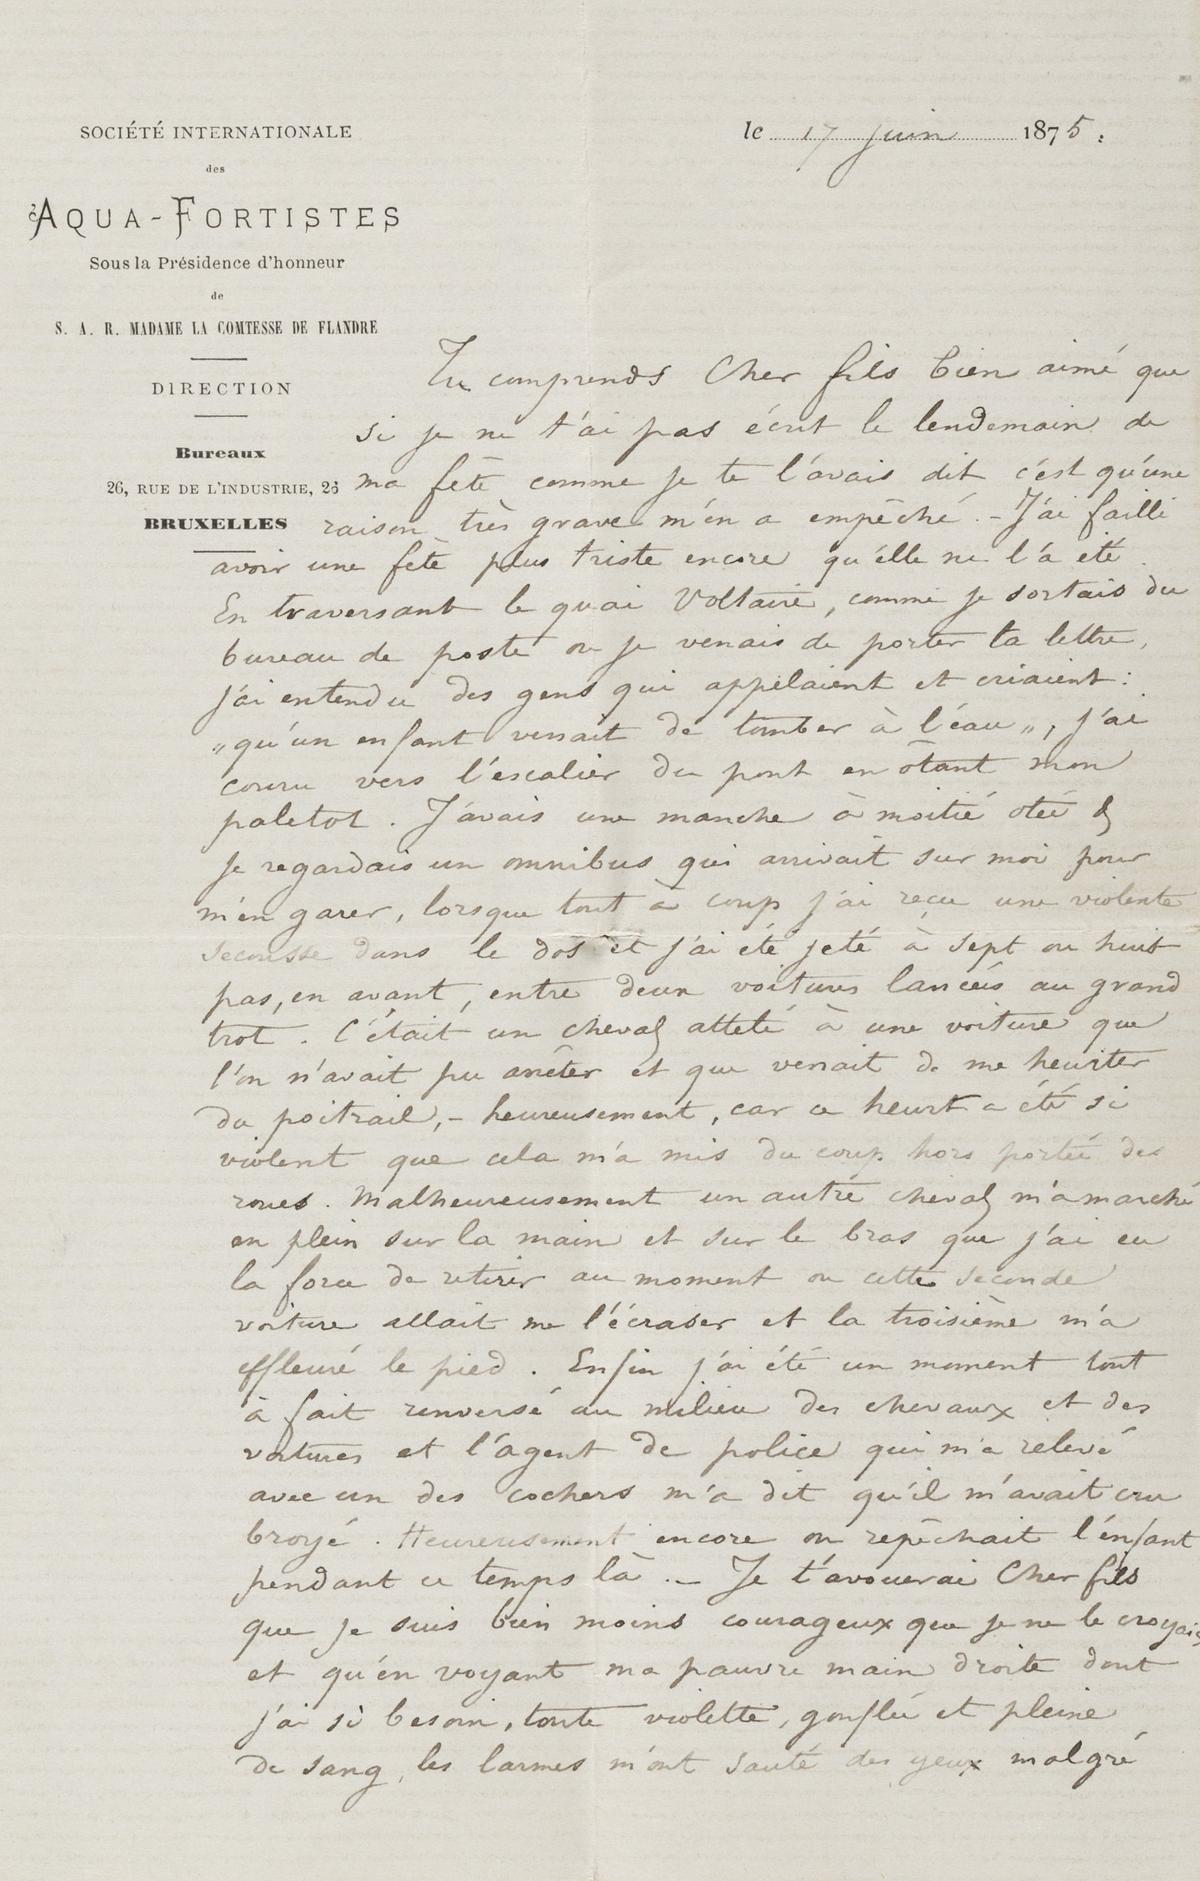 SOCIÉTÉ INTERNATIONALE
des
AQUA-FORTISTES
Sous la Présidence d'honneur
de
S. A. R. MADAME LA COMTESSE DE FLANDRE
DIRECTION
Bureaux
26, RUE DE L'INDUSTRIE, 26
BRUXELLES
le 17 juin 1875.
Tu comprends Cher fils bien aimé que
si je ne t'ai pas écrit le lendemain de
ma fête comme je te l'avais dit c'est qu'une
raison très grave m'en a empêché. - J'ai failli
avoir une fête plus triste encore qu'elle ne l'a été.
En traversant le quai Voltaire, comme je sortais du
bureau de poste ou je venais de porter ta lettre,
j'ai entendu des gens qui appelaient et criaient :
„qu'un enfant venait de tomber à l'eau„, j'ai
couru vers l'escalier du pont en ôtant mon
paletot. J'avais une manche à moitié otée &
je regardais un omnibus qui arrivait sur moi pour
m'en garer, lorsque tout à coup j'ai reçu une violente
secousse dans le dos et j'ai été jeté à sept ou huit
pas, en avant, entre deux voitures lancées au grand
trot. C'était un cheval attelé à une voiture que
l'on n'avait pu arrêter et que venait de me heurter
du poitrail, - heureusement, car ce heurt a été si
violent que cela m'a mis du coup hors portée des
roues. Malheureusement un autre cheval m'a marché
en plein sur la main et sur le bras que j'ai eu
la force de retirer au moment ou cette seconde
voiture allait me l'écraser et la troisième m'a
effleuré le pied. Enfin j'ai été un moment tout
à fait renversé au milieu des chevaux et des
voitures et l'agent de police qui m'a relevé
avec un des cochers m'a dit qu'il m'avait cru
broyé. Heureusement encore on repêchait l'enfant
pendant ce temps là. - Je t'avouerai Cher fils
que je suis bien moins courageux que je ne le croyais
et qu'en voyant ma pauvre main droite dont
j'ai si besoin, toute violette, gonflée et pleine
de sang, les larmes m'ont sauté des yeux malgré